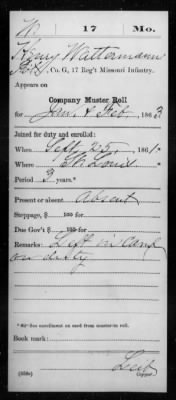 W | 17 | Mo.
Henry Wattermann
Pvt, Co. G, 17 Reg't Missouri Infantry.
Appears on
Company Muster Roll
for Jan. & Feb, 1863
Joined for duty and enrolled:
When Sept. 25, 1861.*
Where St. Louis
Period 3 years.*
Present or absent Absent
Stoppage, $ 100 for
Due Gov't $ 100 for
Remarks: Left in camp
on duty
*See enrollment on card from muster-in roll.
Book mark:
(358c) Copyist.